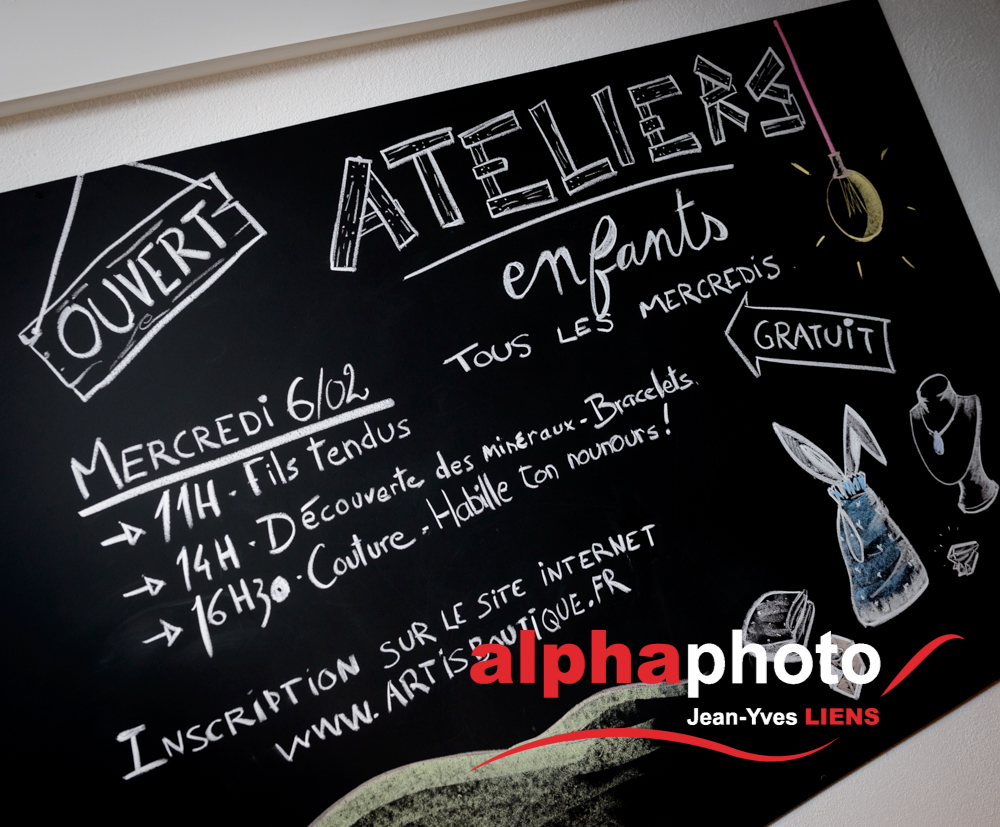 OUVERT
ATELIERS
enfants
TOUS LES MERCREDIS
GRATUIT
MERCREDI 6/02
→ 11H - Fils tendus
→ 14H - Découverte des minéraux - Bracelets.
→ 16H30 - Couture - Habille ton nounours!
INSCRIPTION SUR LE SITE INTERNET
WWW.ARTISBOUTIQUE.FR
alphaphoto
Jean-Yves LIENS